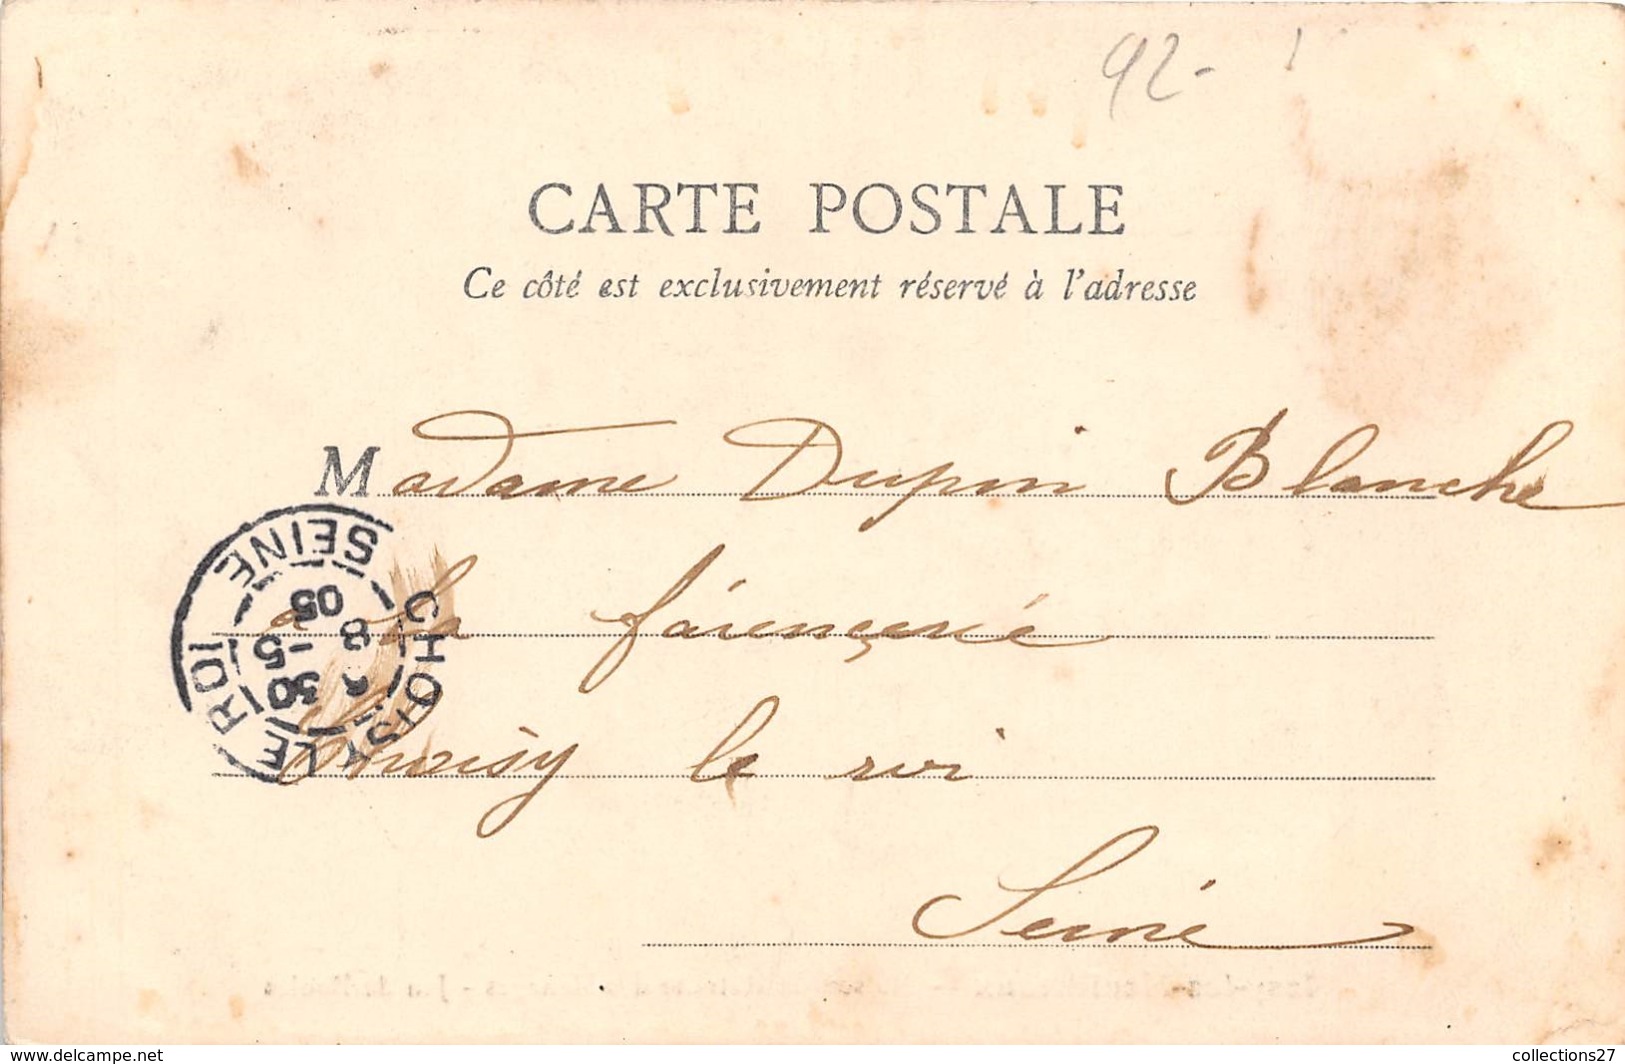 92-
CARTE POSTALE
Ce côté est exclusivement réservé à l'adresse
Madame Dupin Blanche
a la faïençerié
Choisy le roi
Seine
CHOISY LE ROI
SEINE
30 -5
05
www.delcampe.net
collections27